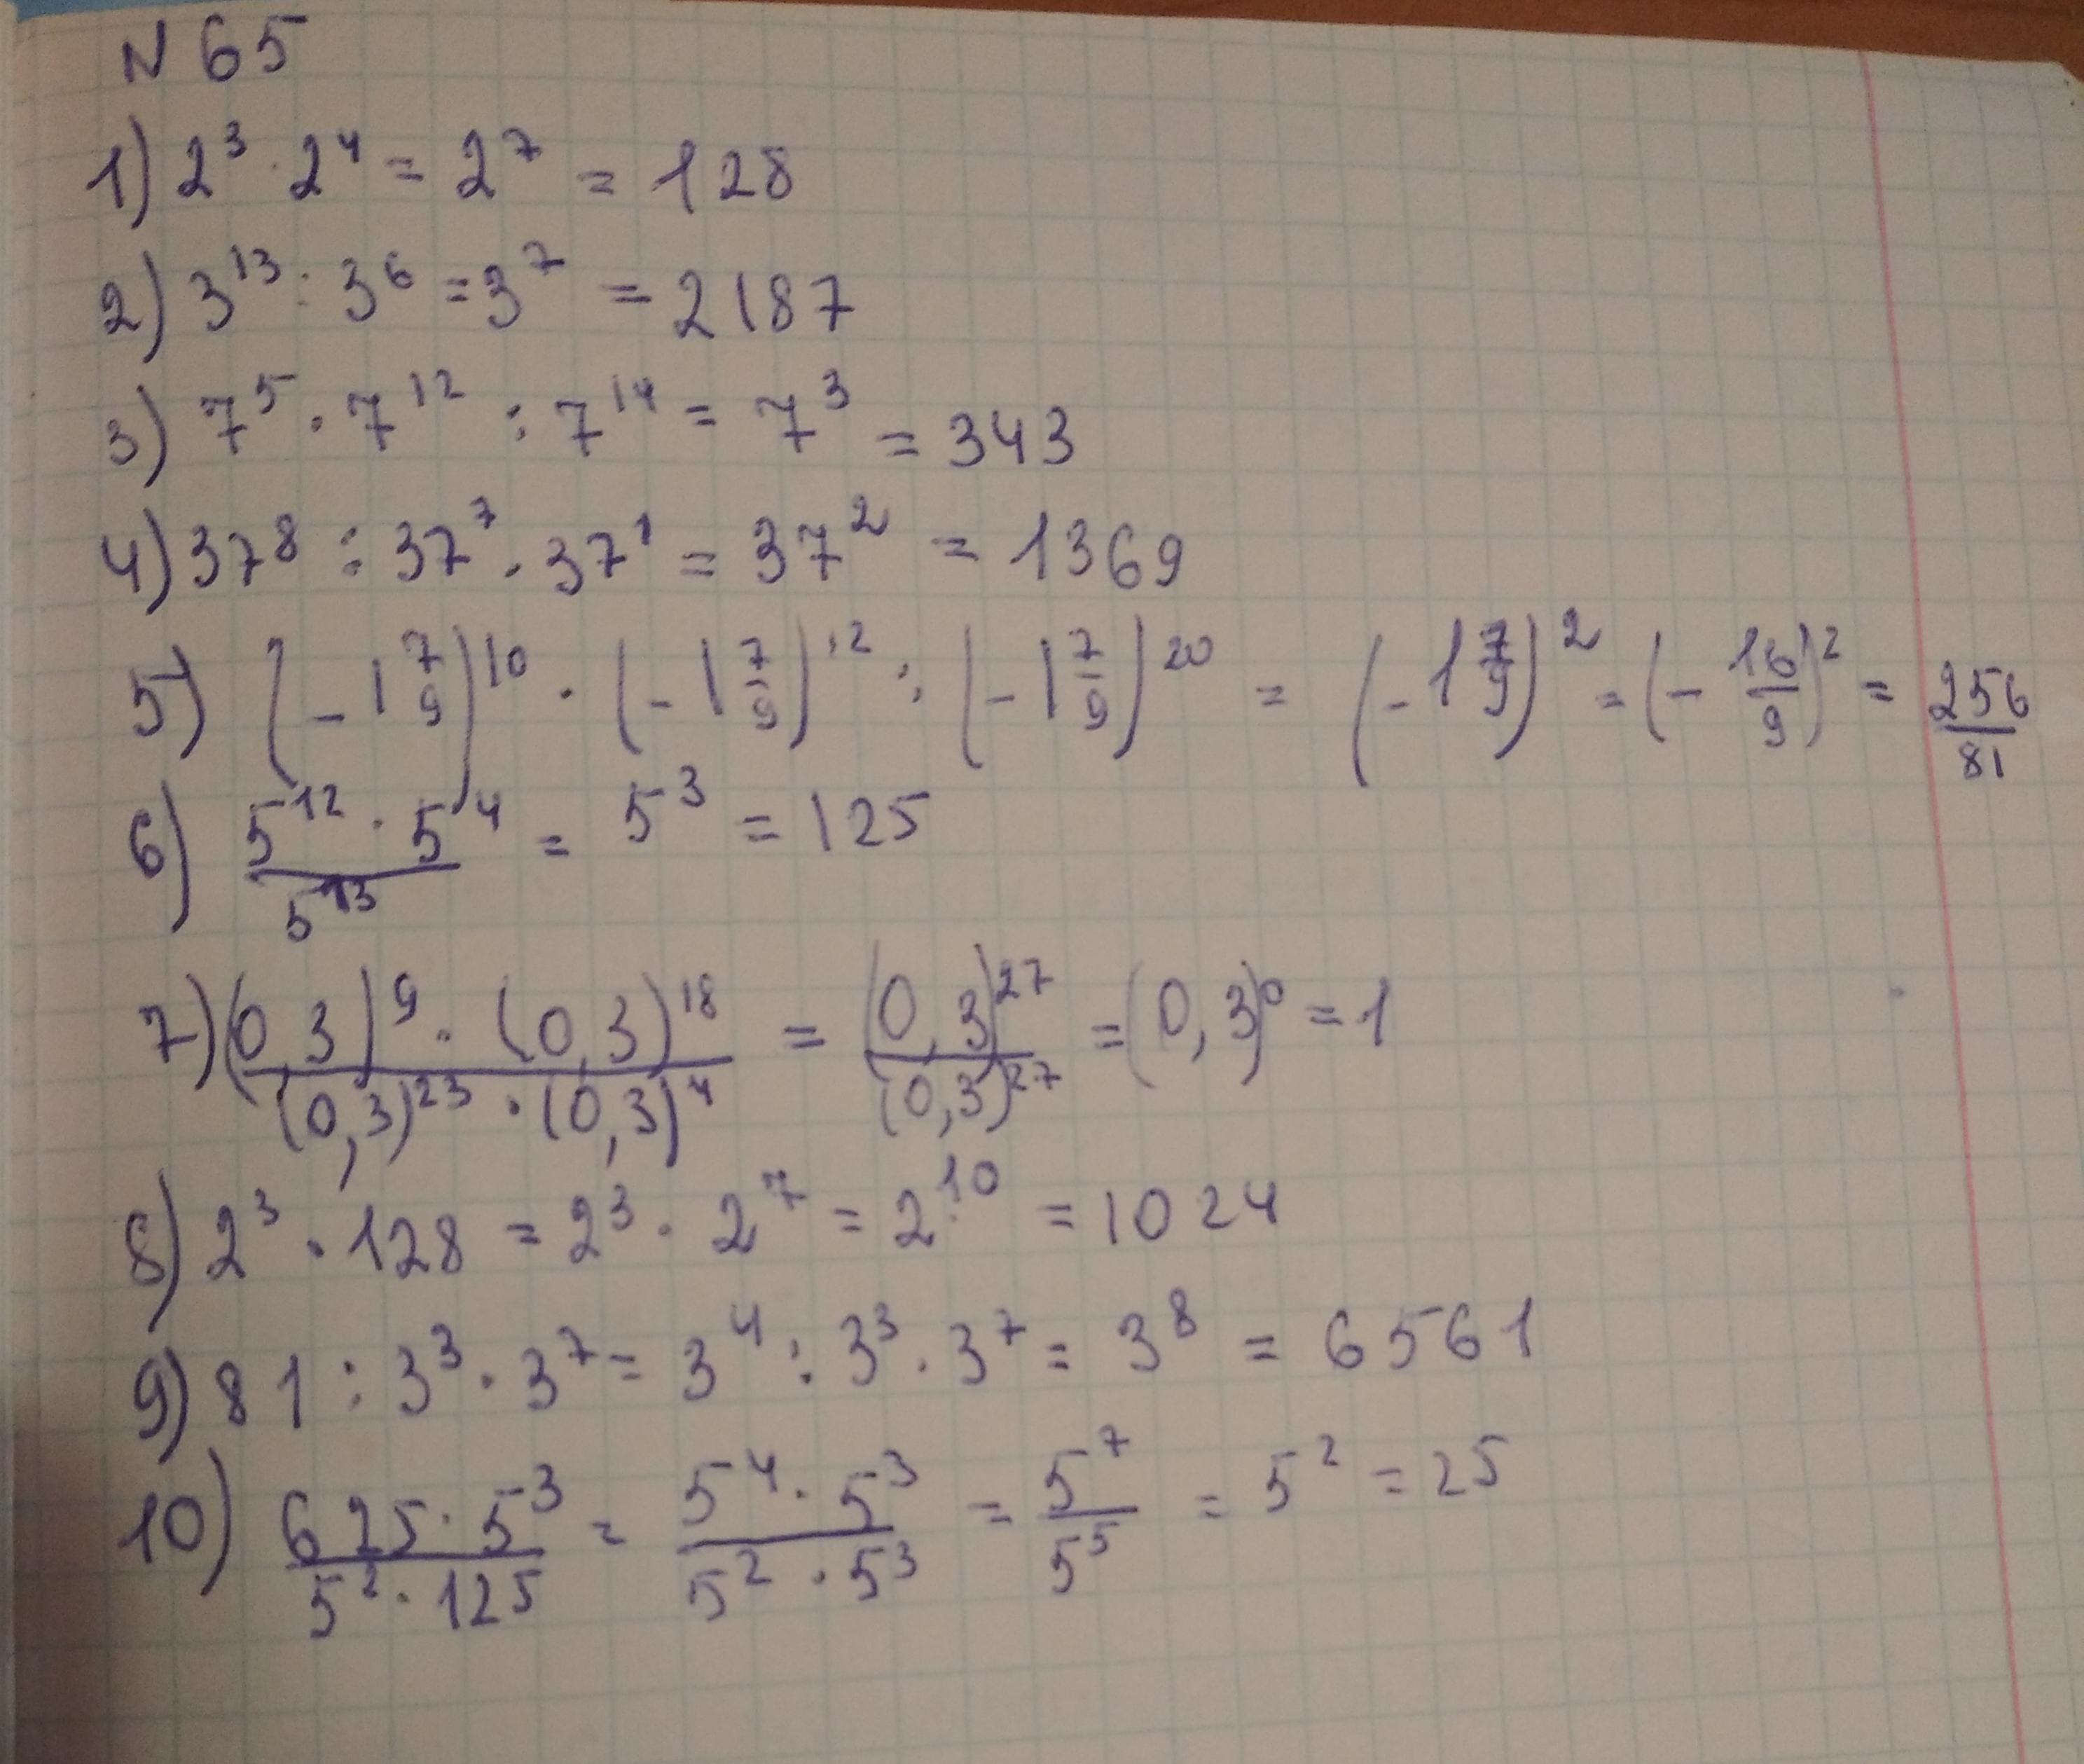 N 65
1) 2³ · 2⁴ = 2⁷ = 128
2) 3¹³ : 3⁶ = 3⁷ = 2187
3) 7⁵ · 7¹² : 7¹⁴ = 7³ = 343
4) 37⁸ : 37⁷ · 37¹ = 37² = 1369
5) (-1 7/9)¹⁰ · (-1 7/9)¹² : (-1 7/9)²⁰ = (-1 7/9)² = (- 16/9)² = 256/81
6) (5¹² · 5⁴)/5¹³ = 5³ = 125
7) ((0,3)⁹ · (0,3)¹⁸)/((0,3)²³ · (0,3)⁴) = (0,3)²⁷/(0,3)²⁷ = (0,3)⁰ = 1
8) 2³ · 128 = 2³ · 2⁷ = 2¹⁰ = 1024
9) 81 : 3³ · 3⁷ = 3⁴ : 3³ · 3⁷ = 3⁸ = 6561
10) (625 · 5³)/(5² · 125) = (5⁴ · 5³)/(5² · 5³) = 5⁷/5⁵ = 5² = 25